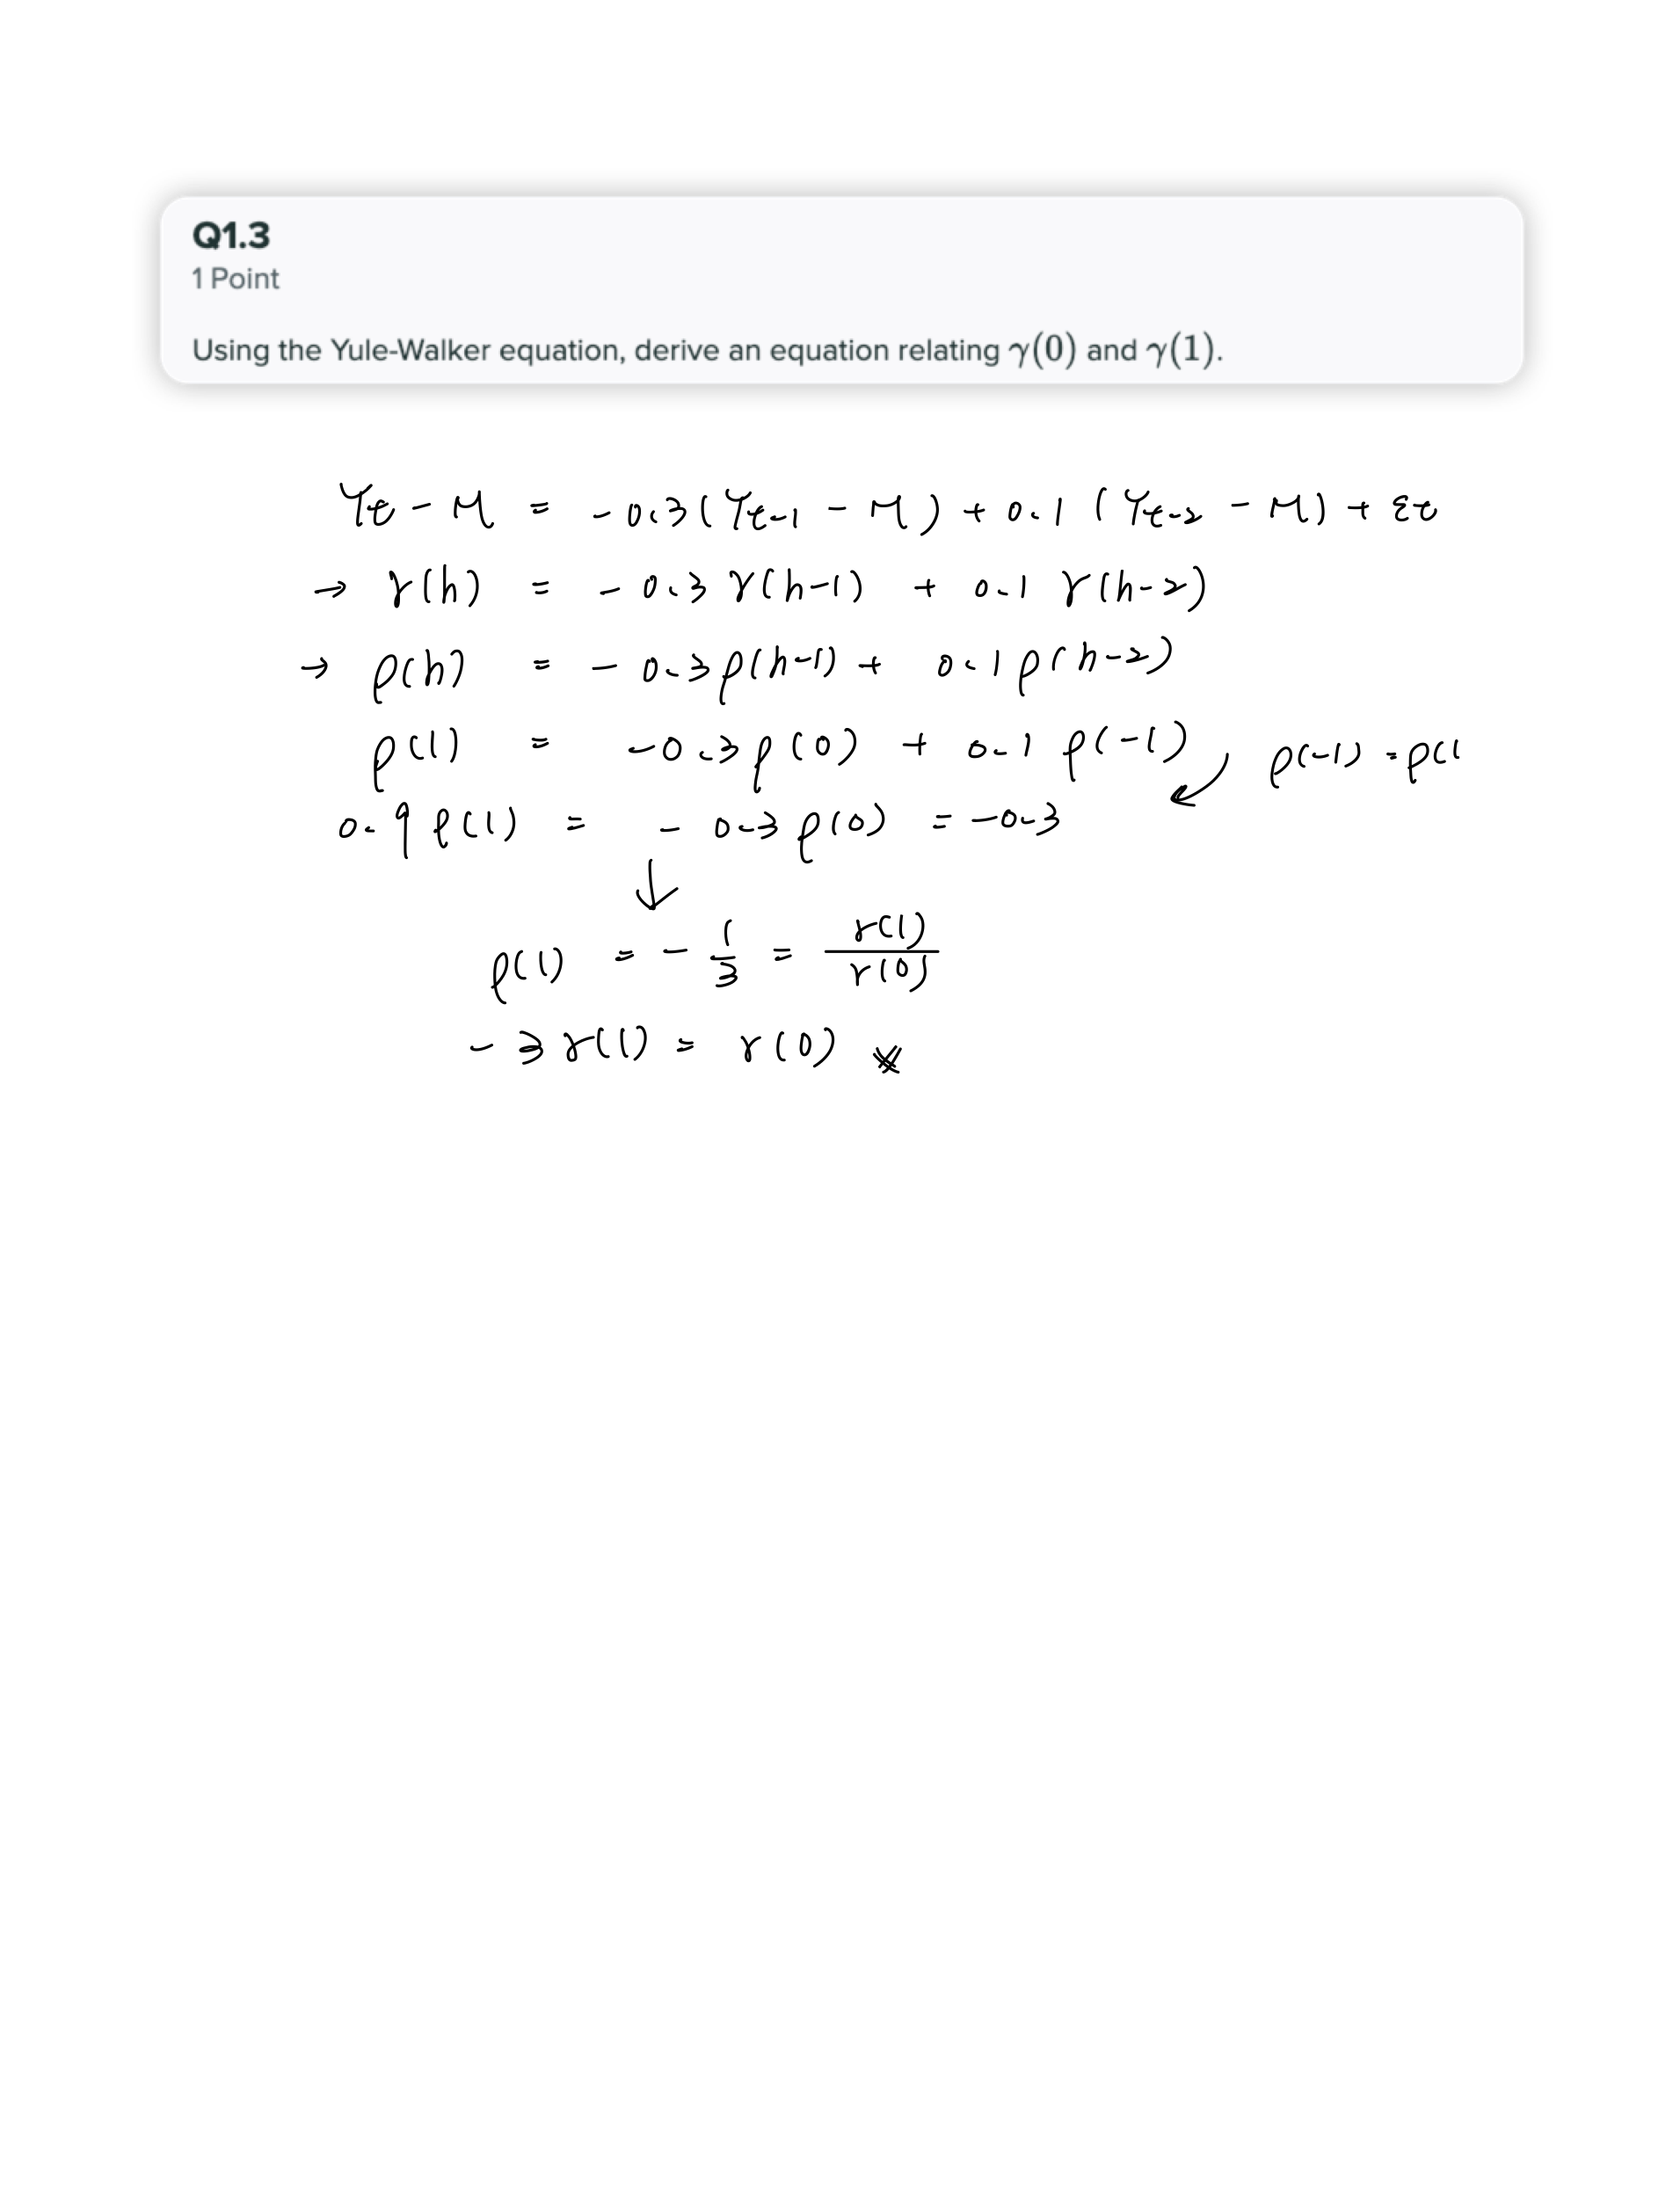 Q1.3
1 Point
Using the Yule-Walker equation, derive an equation relating γ(0) and γ(1).
Yt - M = - 0.3(Yt-1 - M) + 0.1 (Yt-2 - M) + εt
→ γ(h) = - 0.3 γ(h-1) + 0.1 γ(h-2)
→ ρ(h) = - 0.3ρ(h-1) + 0.1ρ(h-2)
ρ(1) = -0.3ρ(0) + 0.1 ρ(-1) ρ(-1) = ρ(1
0.9 ρ(1) = - 0.3 ρ(0) = -0.3
↓
ρ(1) = - 1/3 = γ(1)/γ(0)
- 3 γ(1) = γ(0) ※